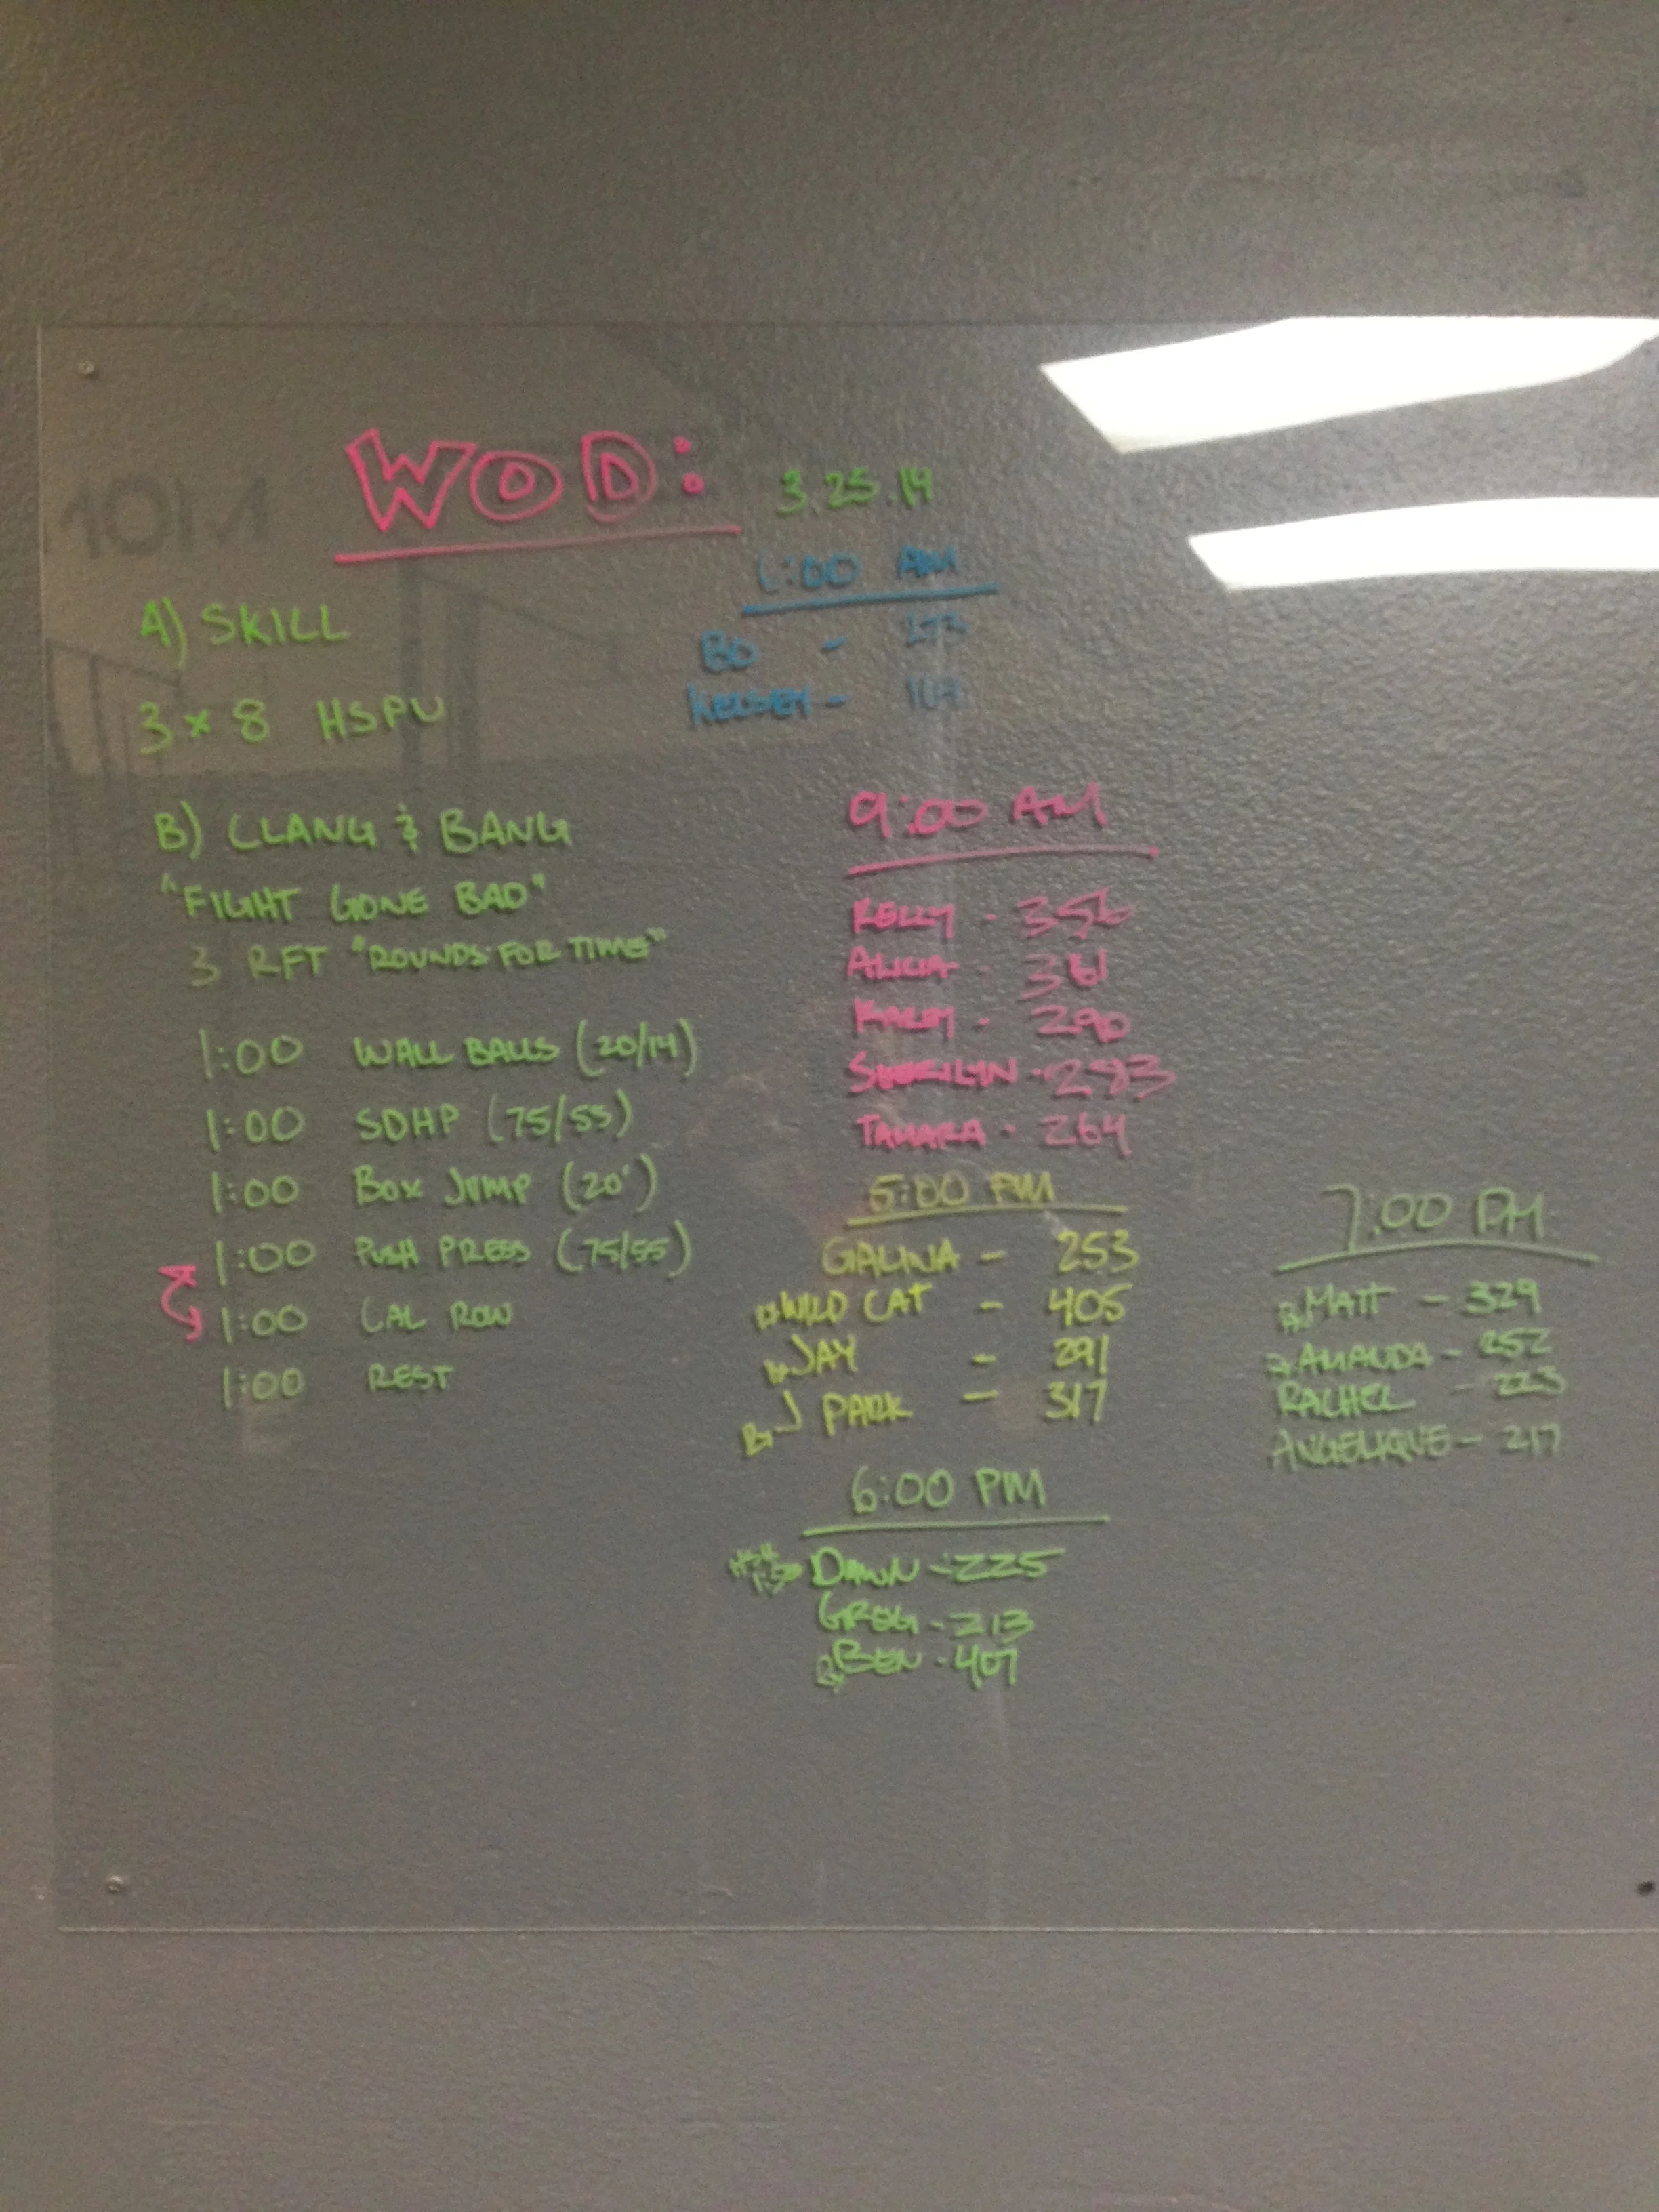 WOD: 3.25.14
A) SKILL
3 x 8 HSPU
B) CLANG & BANG
"FIGHT GONE BAD"
3 RFT "ROUNDS FOR TIME"
1:00 WALL BALLS (20/14)
1:00 SDHP (75/55)
1:00 BOX JUMP (20')
1:00 PUSH PRESS (75/55)
1:00 CAL ROW
1:00 REST
:00 AM
BO - 273
KELSEY -
9:00 AM
KELLY - 356
ALICIA - 361
- 290
SHERILYN - 283
TAMARA - 264
5:00 PM
GALINA - 253
WILD CAT - 405
JAY - 291
J PARK - 317
6:00 PM
DAWN - 225
GREG - 213
BEN - 407
7:00 PM
MATT - 329
AMANDA - 252
RACHEL - 223
ANGELIQUE - 217
10M